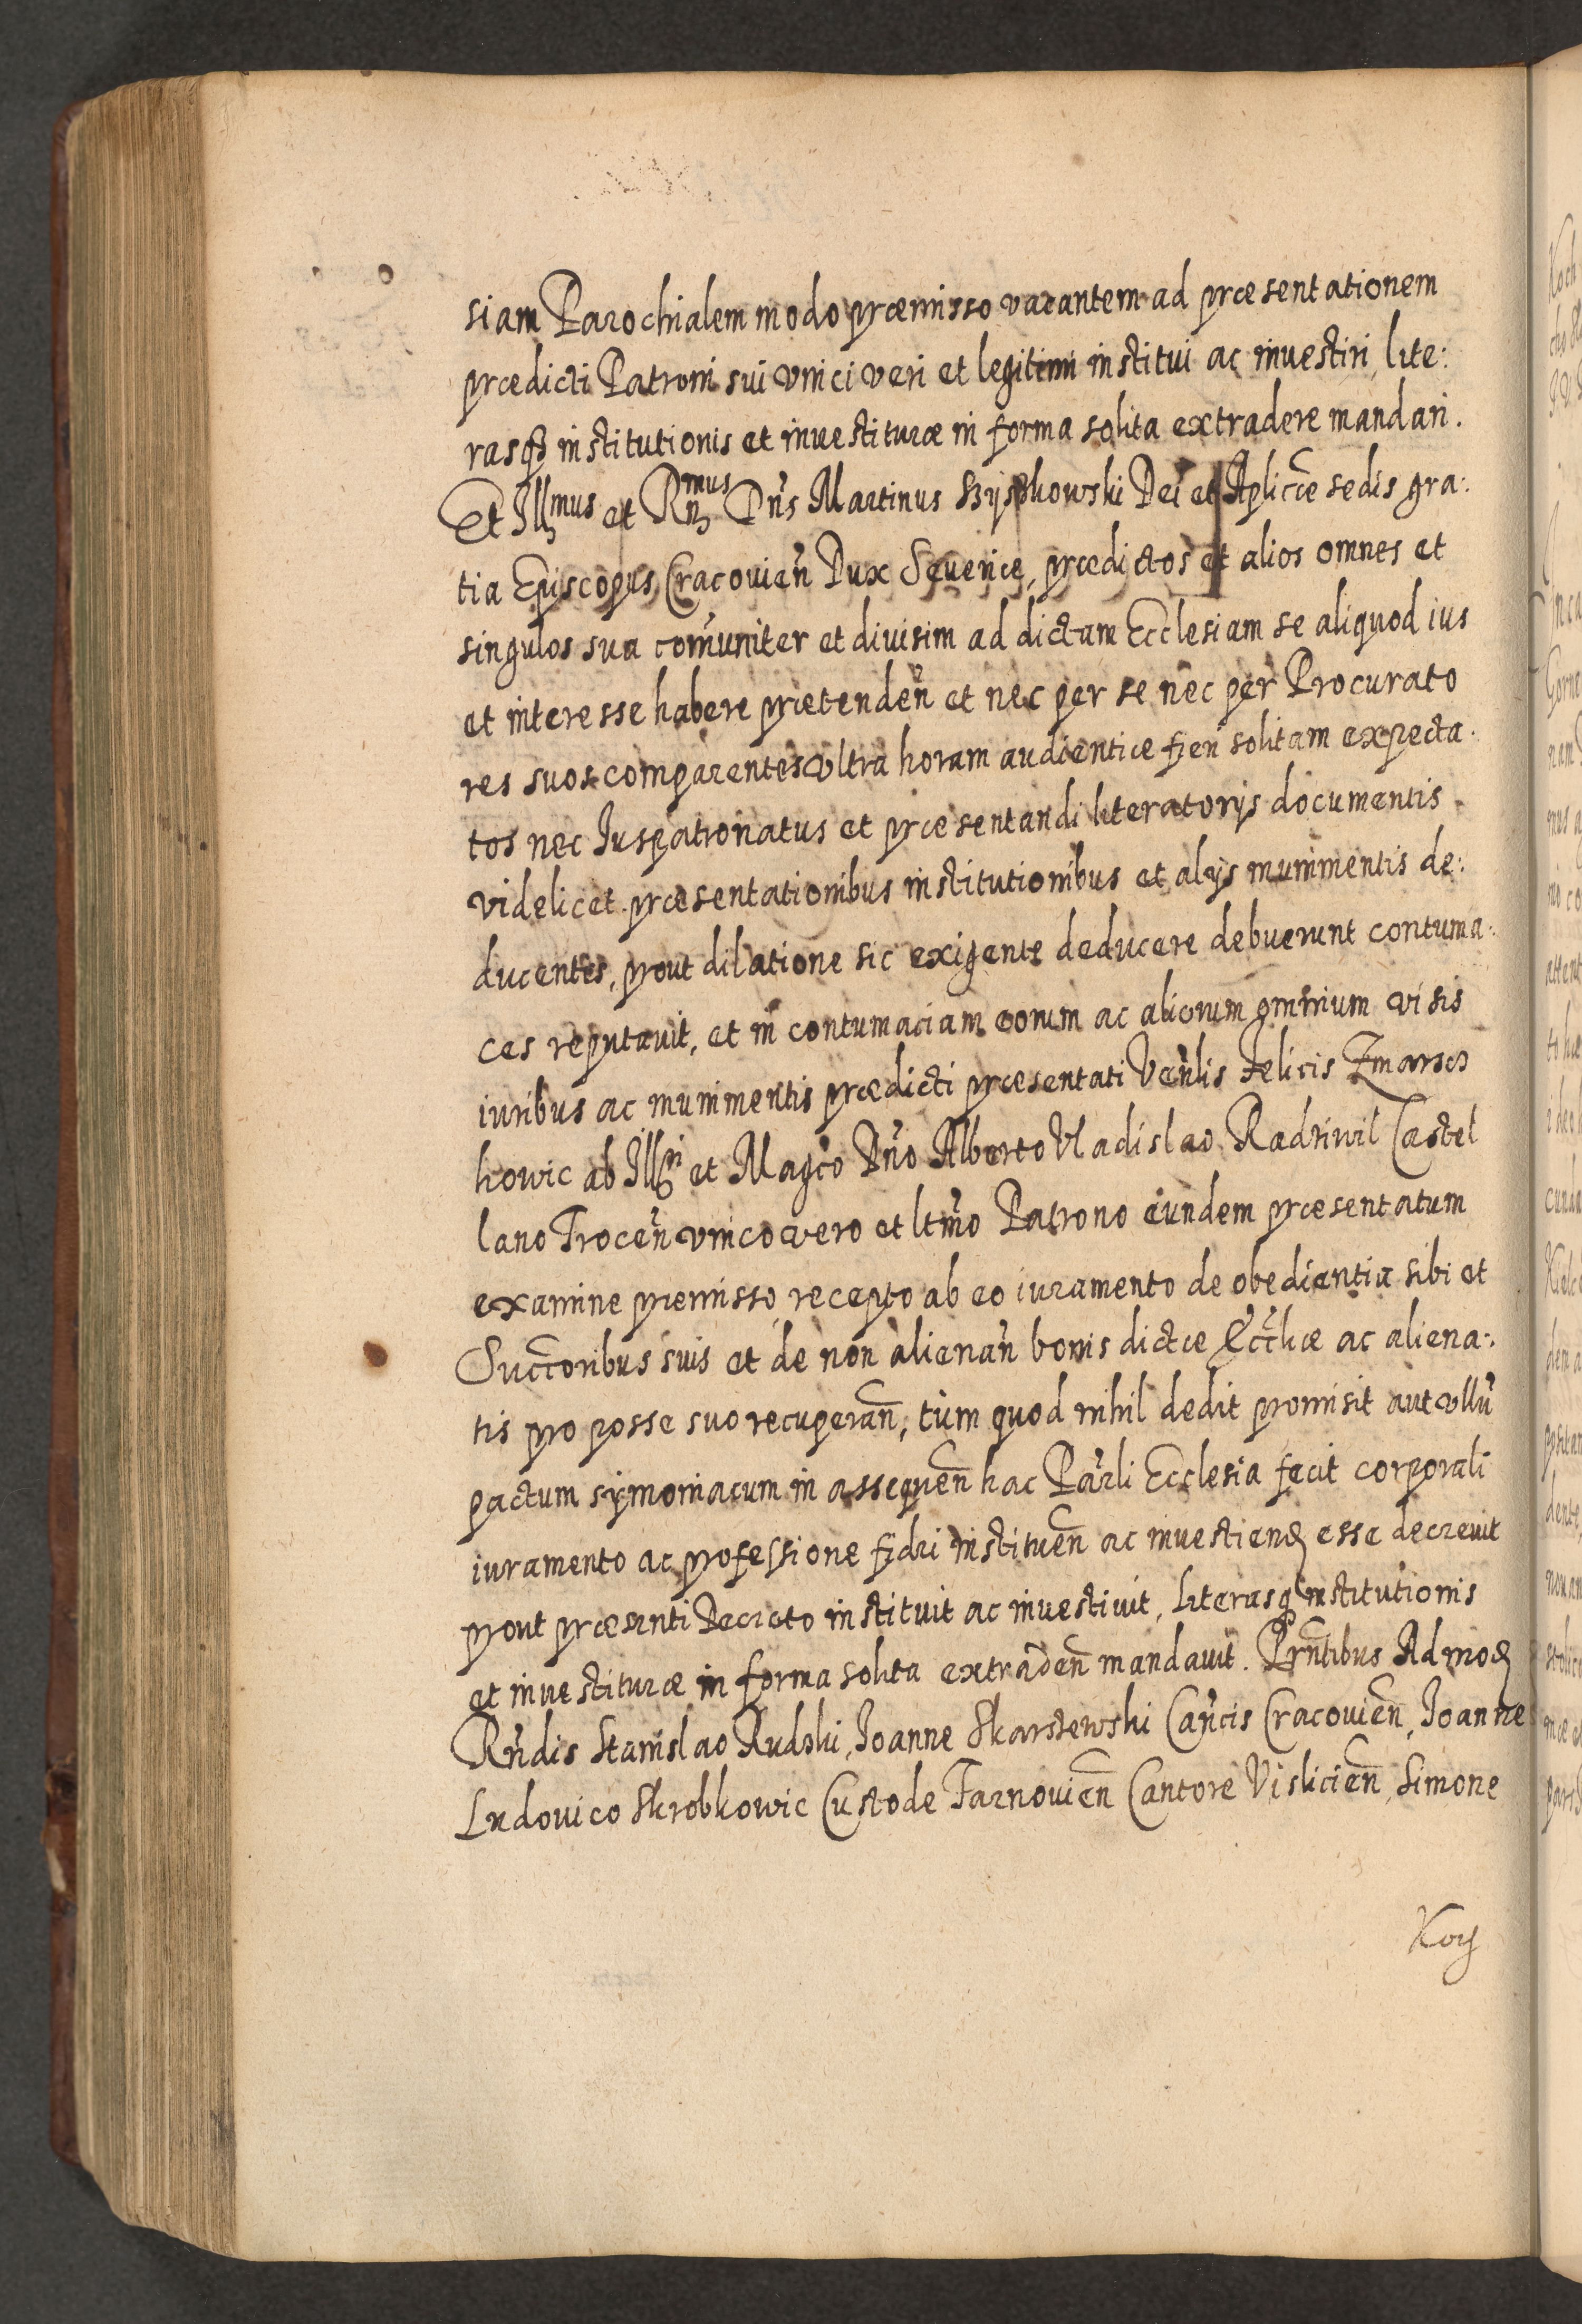 siam Parochialem modo præmisso vacantem ad præsentationem
prædicti Patroni sui vnici veri et legitimi institui ac inuestiri, lite:
rasq3 institutionis et inuestituræ in forma solita extradere mandari.
Et Illmus et Rmus Dn̄s Martinus Szyszkowski Dei et Aplicæ sedis gra:
tia Episcopus Cracouien̄ Dux Seueriæ, prædictos et alios omnes et
singulos sua com̄uniter et diuisim ad dictam Ecclesiam se aliquod ius
et interesse habere prætenden̄ et nec per se nec per Procurato
res suos comparentes vltra horam audientiæ fien̄ solitam expecta.
tos nec Iuspatronatus et præsentandi literatorijs documentis
videlicet præsentationibus institutionibus et alijs munimentis de:
ducentes, prout dilatione sic exigente deducere debuerunt contuma:
ces reputauit, et in contumaciam eorum ac aliorum omnium visis
iuribus ac munimentis prædicti præsentati Venlis Felicis Zmarsz
kowic ab Ill et Magco Dn̄o Alberto Vladislao Radziwil Castel
lano Trocen̄ vnico vero et ltm̄o Patrono eundem præsentatum
examine præmisso, recepto ab eo iuramento de obedientia sibi et
Succoribus suis et de non alienan̄ bonis dictæ Eccliæ ac aliena:
tis pro posse suo recuperan̄, tum quod nihil dedit promisit aut vllū
pactum symoniacum in assequen̄ hac Parli Ecclesia fecit corporali
iuramento ac professione fidei instituen̄ ac inuestiend esse decreuit
prout præsenti Decreto instituit ac inuestiuit, Literasq institutionis
et inuestituræ in forma solita extraden̄ mandauit. Prn̄tibus Admod
Rn̄dis Stanislao Rudzki, Ioanne Skarszewski Can̄cis Cracouien̄, Ioanne
Ludouico Skrobkowic Custode Tarnouien̄ Cantore Vislicien̄, Simone
Koy